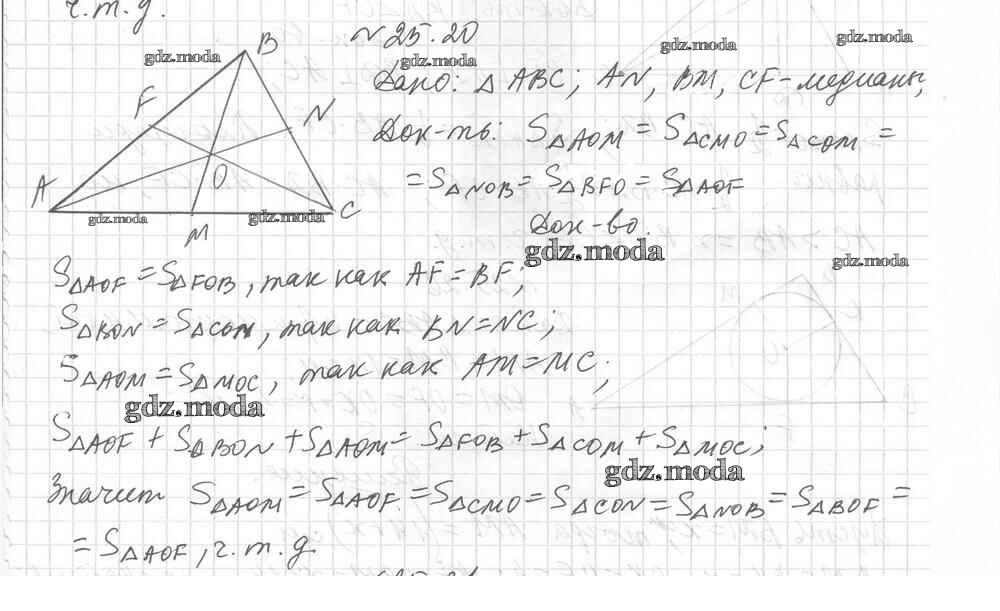 ч.т.д.
№25.20
gdz.moda
B
gdz.moda
gdz.moda
gdz.moda
Дано: △ABC; AN, BM, CF-медианы,
F
N
Док-ть: S△AOM = S△CMO = S△COM =
O
= S△NOB = S△BFO = S△AOF
A
C
gdz.moda
gdz.moda
M
Док-во.
gdz.moda
gdz.moda
S△AOF = S△FOB, так как AF = BF;
S△BON = S△CON, так как BN = NC;
S△AOM = S△MOC, так как AM = MC;
gdz.moda
S△AOF + S△BON + S△AOM = S△FOB + S△COM + S△MOC;
gdz.moda
Значит S△AOM = S△AOF = S△CMO = S△CON = S△NOB = S△BOF =
= S△AOF, ч.т.д.